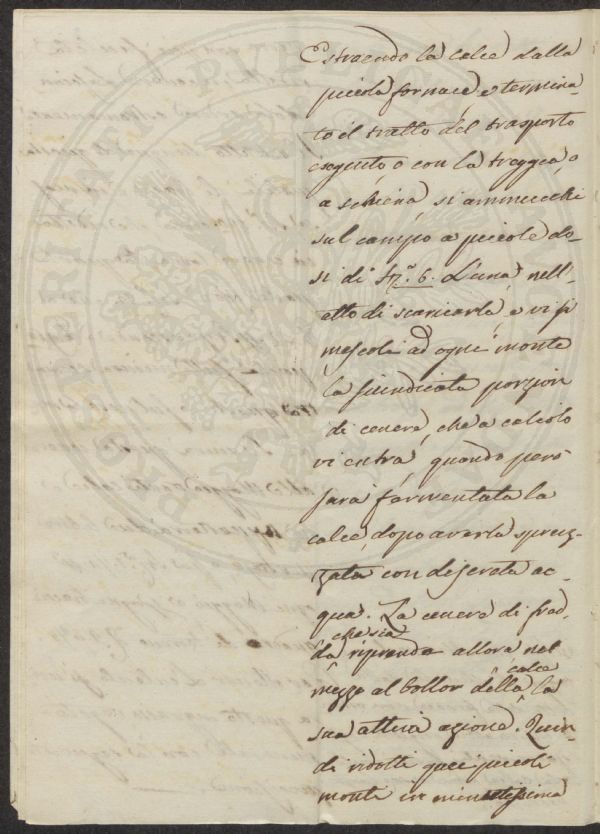 Estraendo la calce dalla
piccola fornace, e termina-
to il tratto del trasporto
eseguito o con la treggea, o
a schiena, si ammucchi
sul campo a piccole do-
si di 6. L'una, nell'
atto di scaricarla, e vi si
mescoli ad ogni monte
la suindicata porzion
di cenere, che a calcolo
vi entra, quando però
sarà farmentata la
calce, dopo averla spruz-
zata con discreta ac-
qua. La cenere di fred-
che sia
da riprende allora nel
calce
mezzo al bollor della la
sua attiva azione. Quin-
di ridotti quei piccoli
monti in minutissima